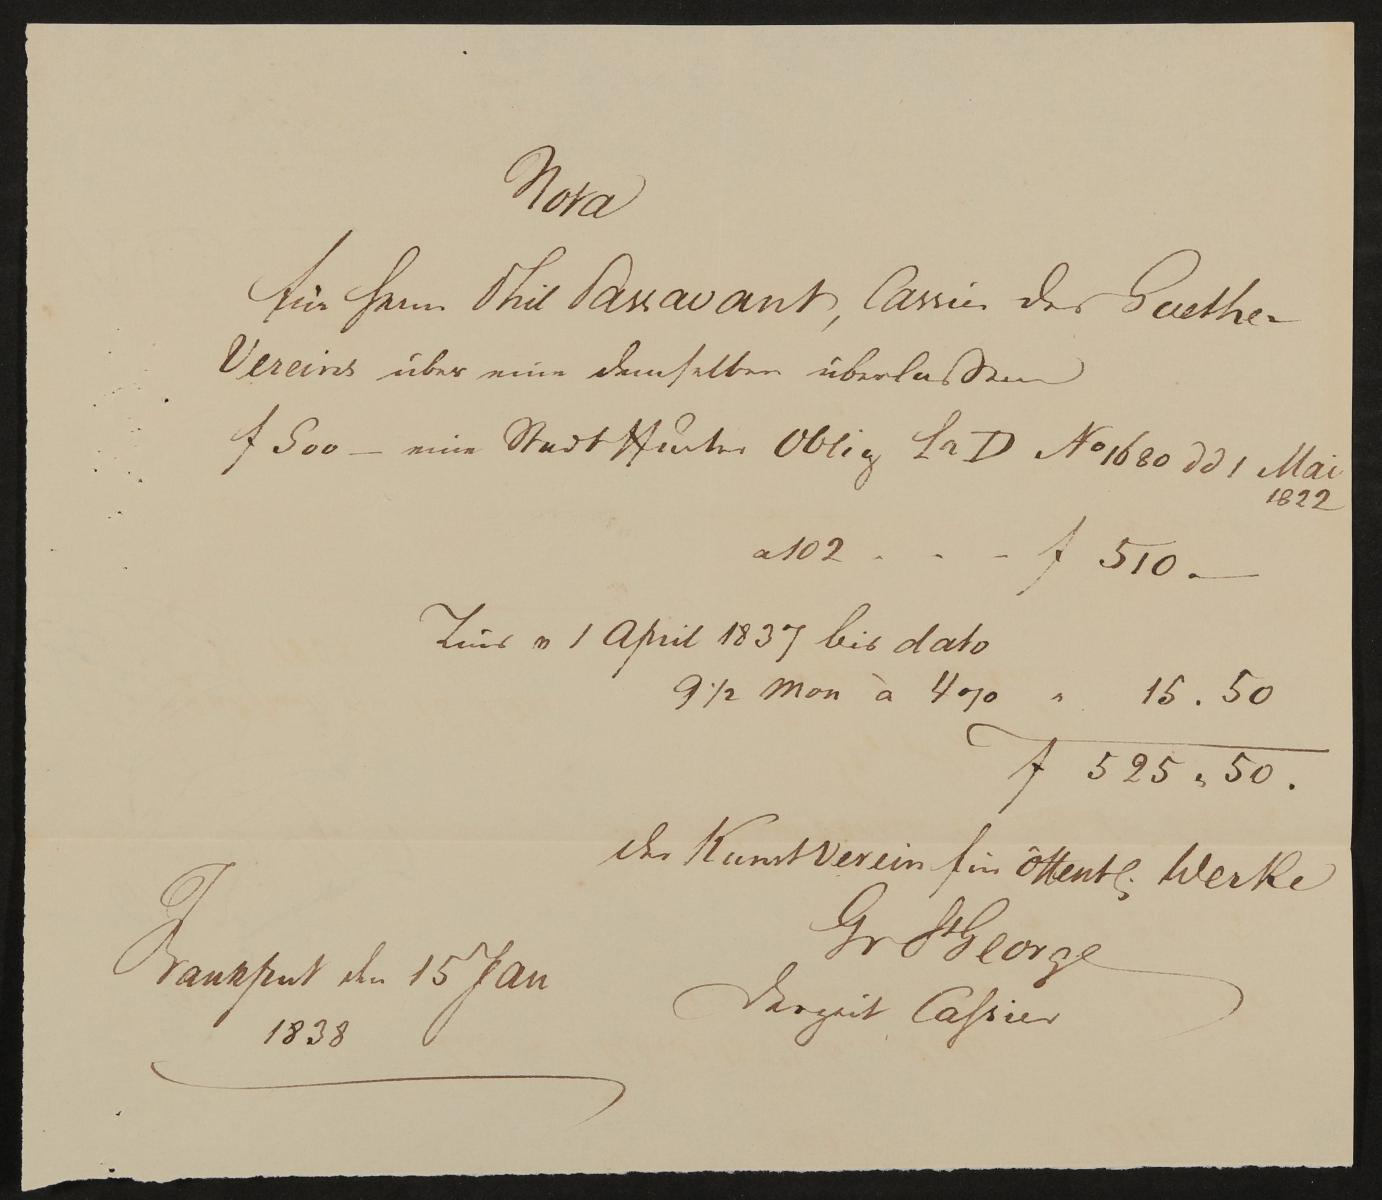 Nota
für Herrn Phil Passavant, Cassier des Goethe-
Vereins über eine demselben überlassene
f 500 — eine Stadt Oblig La D No 1680 dd 1 Mai
1822
a 102 - - - f 510.—
Zins v 1 April 1837 bis dato
9 1/2 Mon à 4% " 15.50
f 525.50.
der Kunstverein für öffentl: Werke
Gr St George
derzeit Cassier
Frankfurt den 15 Jan
1838